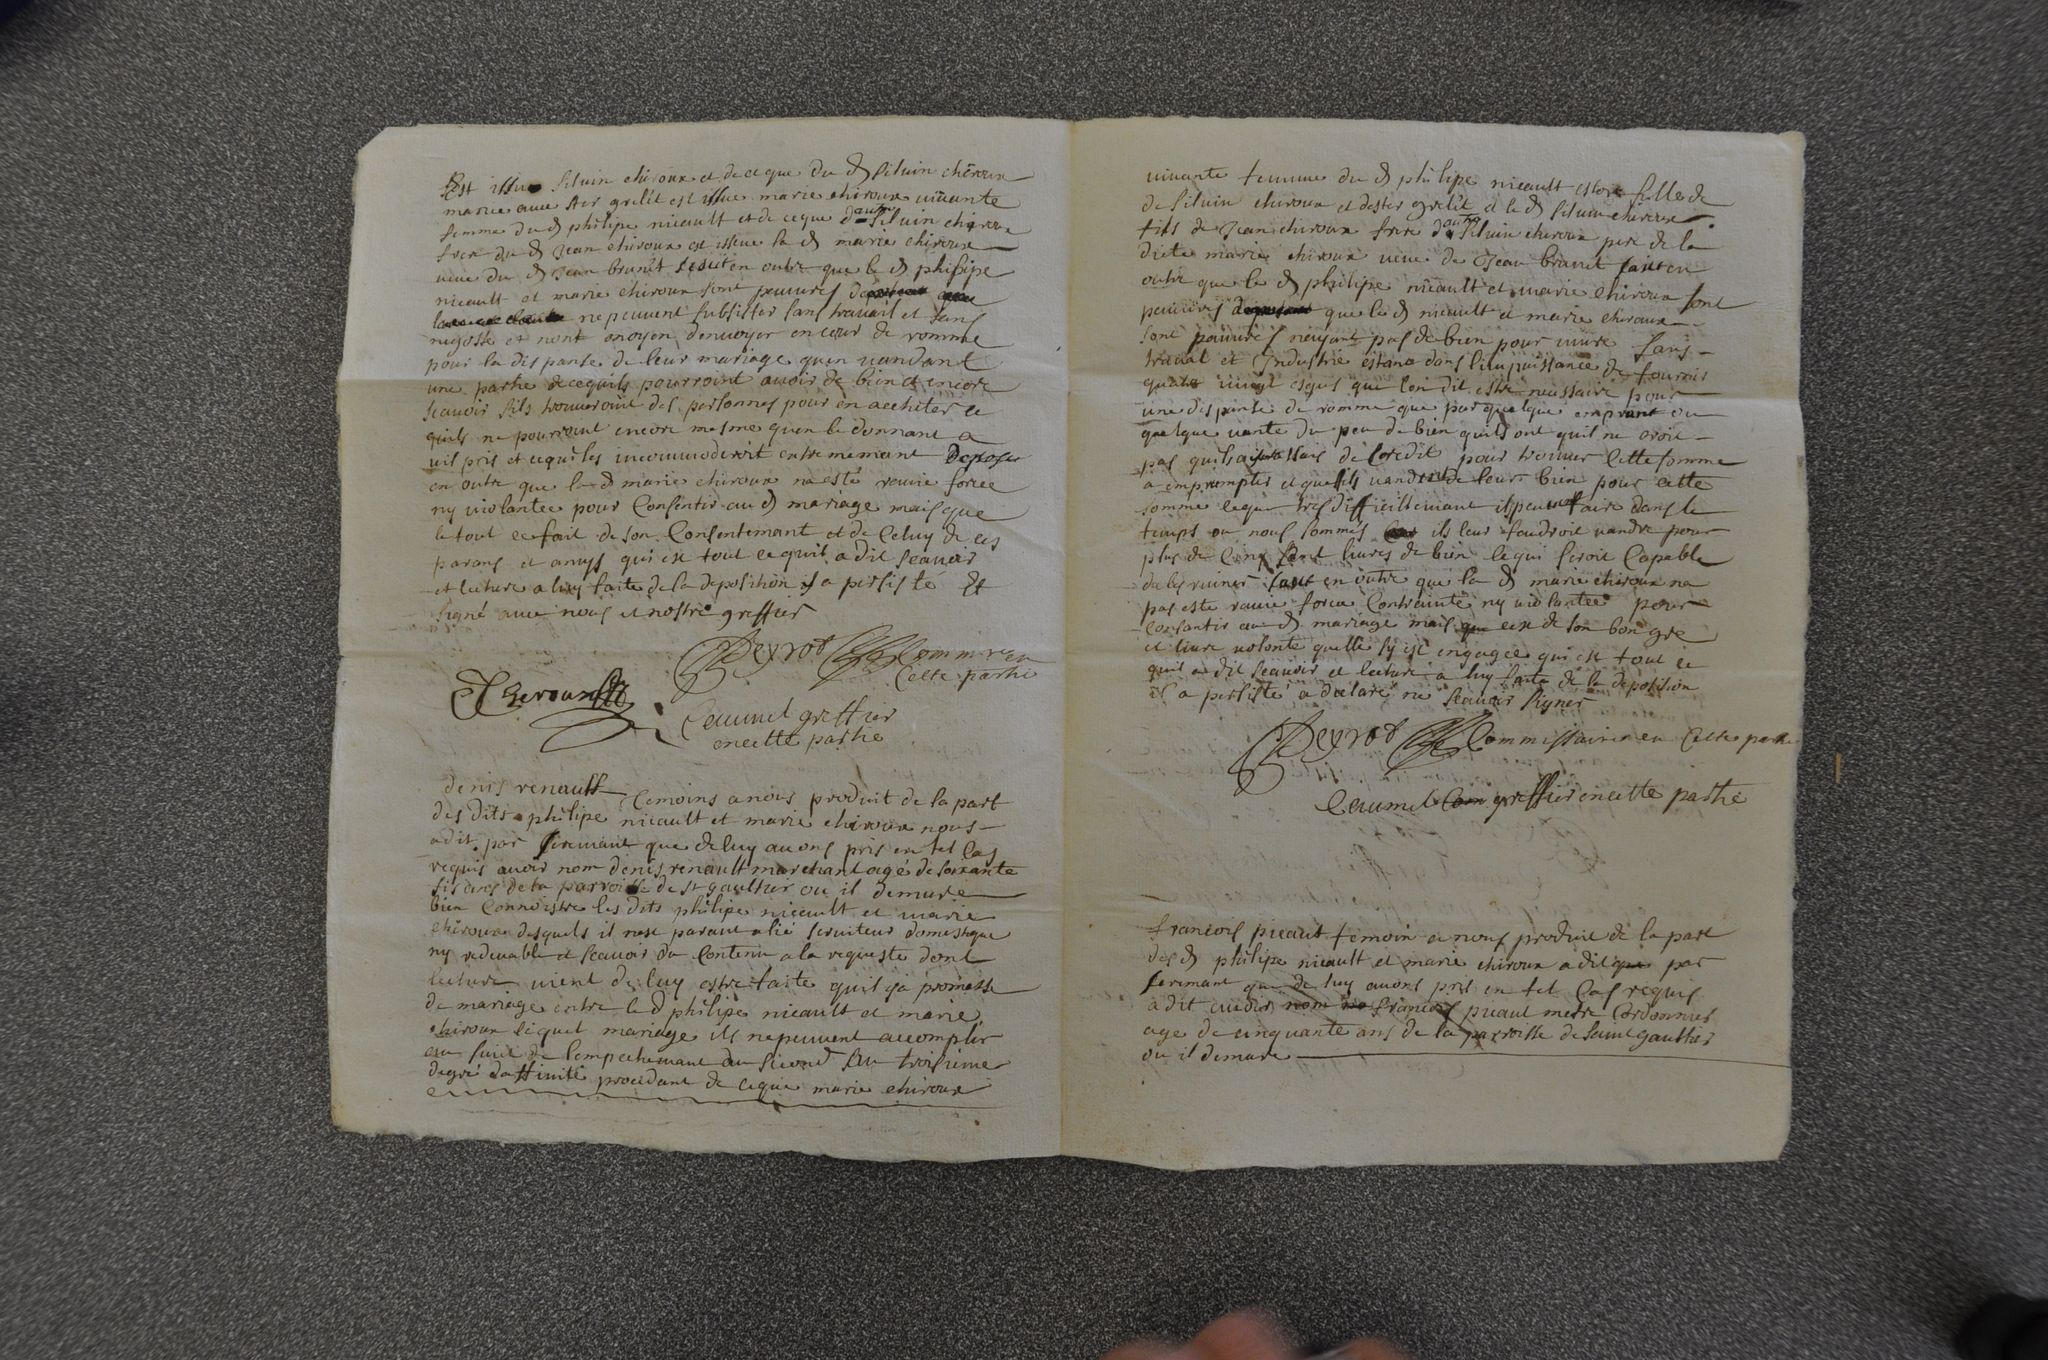 Est issue siluin chiroux et de ce que du d siluin chiroux
mariee avec ster grelét est issue marie chiroux viuante
femme du d philipe nicault et de ceque d autre siluin chiroux
frere du d Jean chiroux est issue la d marie chiroux
veue du d Jean brunét en outre que le d philipe
nicault et marie chiroux sont peuures
ne peuuent subsister sans trauail et sans
negosse et nont moyen denuoyer en cour de romme
pour la dispanse de leur mariage quen vandant
une partie de cequils pourroint auoir de bien et encore
scauoir sils trouueroint des personnes pour en achèter ce
quils ne pourroint encore mesme quen le donnant a
vil pris et cequi les incommoderoit entremement depose
en outre que la d marie chiroux na esté rauie forcee
ny violantee pour Consentir au d mariage mais que
le tout ce fait de son Consentemant et de Celuy de ces
parans et amys qui est tout ce quil a dit scauoir
et lecture a luy faite de sa deposition y a persisté et
signé auec nous et nostre greffier
Peyrot Commre en
Cette partie
Jaumel greffier
en cette partie
denis renault temoins a nous produit de la part
des dits philipe nicault et marie chiroux nous
a dit par seremant que de luy auons pris en tel Cas
requis auoir nom denis renault marchant agé de soixante
six ans de la parroisse de st gaultier ou il demure
bien Connoistre les dits philipe nicault et marie
chiroux desquels il nest parant alié seruiteur domestique
ny redeuable et scauoir du Contenu a la requeste dont
lecture vient de luy estre faite quil y a promesse
de mariage entre le d philipe nicault et marie
chiroux lequel mariage ils ne peuuent accomplir
au suiet de lempechemant du second au troisieme
degré daffinité procedant de ceque marie chiroux
viuante femme du d philipe nicault estoit fille de
de siluin chiroux et dester grelét et le d siluin chiroux
fils de Jean chiroux frere d autre siluin chiroux pere de la
dicte marie chiroux veue de Jean brunét en
outre que le d philipe nicault et marie chiroux sont
peuures que les d nicault et marie chiroux
sont pauures nayant pas de bien pour viure sans
trauail et Industrie estans dans linpuissance de fournir
quatre vingt esqus que lon dit estre necessaire pour
une dispanse de romme que par quelque emprunt ou
quelque vante du peu de bien quils ont quil ne croit
pas quils de Credit pour trouuer Cette somme
a emprunter et que sils vandent de leur bien pour cette
somme lequel tres difficillemant ils peuuent faire dans le
temps ou nous sommes ils leur faudroit vandre pour
plus de Cinq sant liures de bien lequi seroit Capable
de les ruiner en outre que la d marie chiroux na
pas esté rauie forcee Contrainte ny violantee pour
Consantir au d mariage mais que cest de son bon gre
et liure volonté quelle sy est engagee qui est tout ce
quil a dit scauoir et lecture a luy faite de sa deposition
il a persisté a declaré ne scauoir signer
Peyrot Commissaire en Cette partie
Jaumel greffier en cette partie
francois picaut temoin a nous produit de la part
des d philipe nicault et marie chiroux a dit que par
seremant que de luy auons pris en tel Cas requis
a dit auoir nom francois picaut metre Cordonnier
age de cinquante ans de la parroisse de saint gaultier
ou il demure